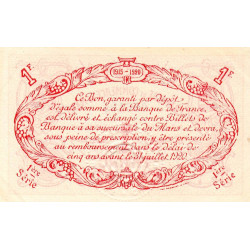 1F. 1915-1920 1F.
Ce Bon, garanti par dépôt
d'égale somme à la Banque de France,
est délivré et échangé contre Billets de
Banque à sa succursale du Mans et devra,
sous peine de prescription, y être présenté
au remboursement dans le délai de
cinq ans avant le 31 juillet 1920.
1ère Série
1ère Série